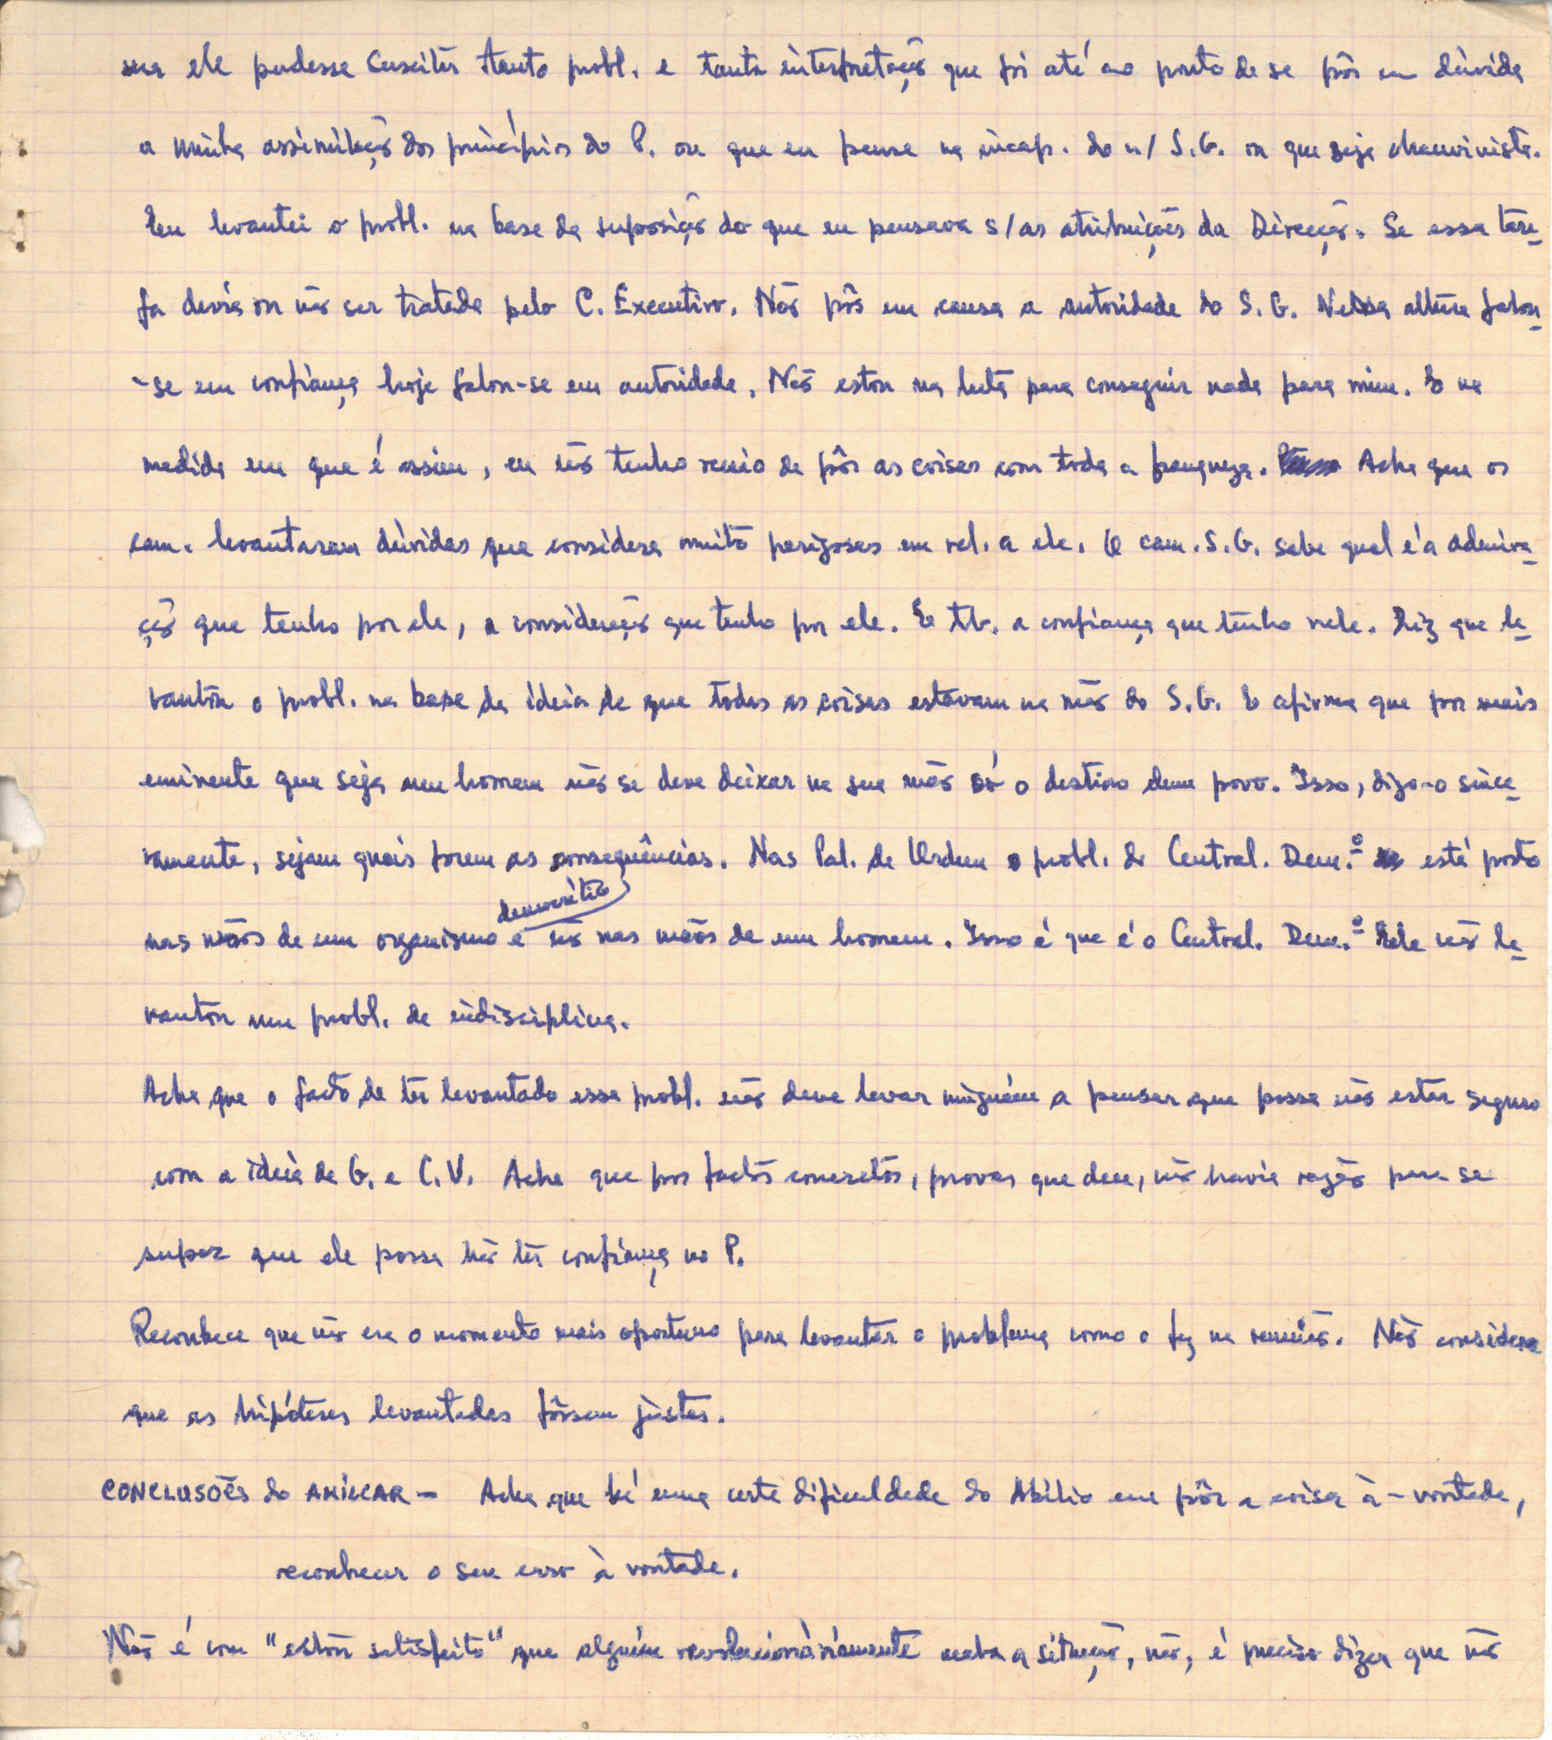 que ele pudesse suscitar tanto probl. e tanta interpretação que foi até ao ponto de se pôr em dúvida
a minha assimilação dos princípios do P. ou que eu pense na incap. do n/ S.G. ou que seja chauvinista.
Eu levantei o probl. na base da suposição do que eu pensava s/ as atribuições da Direcção. Se essa tare-
fa devia ou não ser tratada pelo C. Executivo. Não pôs em causa a autoridade do S.G. Nessa altura falou-
-se em confiança hoje falou-se em autoridade. Não estou na luta para conseguir nada para mim. E na
medida em que é assim, eu não tenho receio de pôr as coisas com toda a franqueza. Acha que os
cam. levantaram dúvidas que considera muito perigosas em rel. a ele. O cam. S.G. sabe qual é a admira-
ção que tenho por ele, a consideração que tenho por ele. E tb. a confiança que tenho nele. Diz que le-
vantou o probl. na base da ideia de que todas as coisas estavam na mão do S.G. E afirma que por mais
eminente que seja um homem não se deve deixar na sua mão só o destino dum povo. Isso, digo-o since-
ramente, sejam quais forem as consequências. Nas Pal. de Ordem o probl. do Central. Dem.º está posto
nas mãos de um organismo democrático e não nas mãos de um homem. Isso é que é o Central. Dem.º Ele não le-
vantou um probl. de indisciplina.
Acha que o facto de ter levantado esse probl. não deve levar ninguém a pensar que possa não estar seguro
com a ideia de G. e C.V. Acha que por factos concretos, provas que deu, não havia razão para se
supor que ele possa não ter confiança no P.
Reconhece que não era o momento mais oportuno para levantar o problema como o fez na reunião. Não considera
que as hipóteses levantadas fôssem justas.
CONCLUSÕES do AMILCAR - Acha que há uma certa dificuldade do Abílio em pôr a coisa à-vontade,
reconhecer o seu erro à vontade.
Não é com "estou satisfeito" que alguém revolucionàriamente acaba a situação, não, é preciso dizer que não